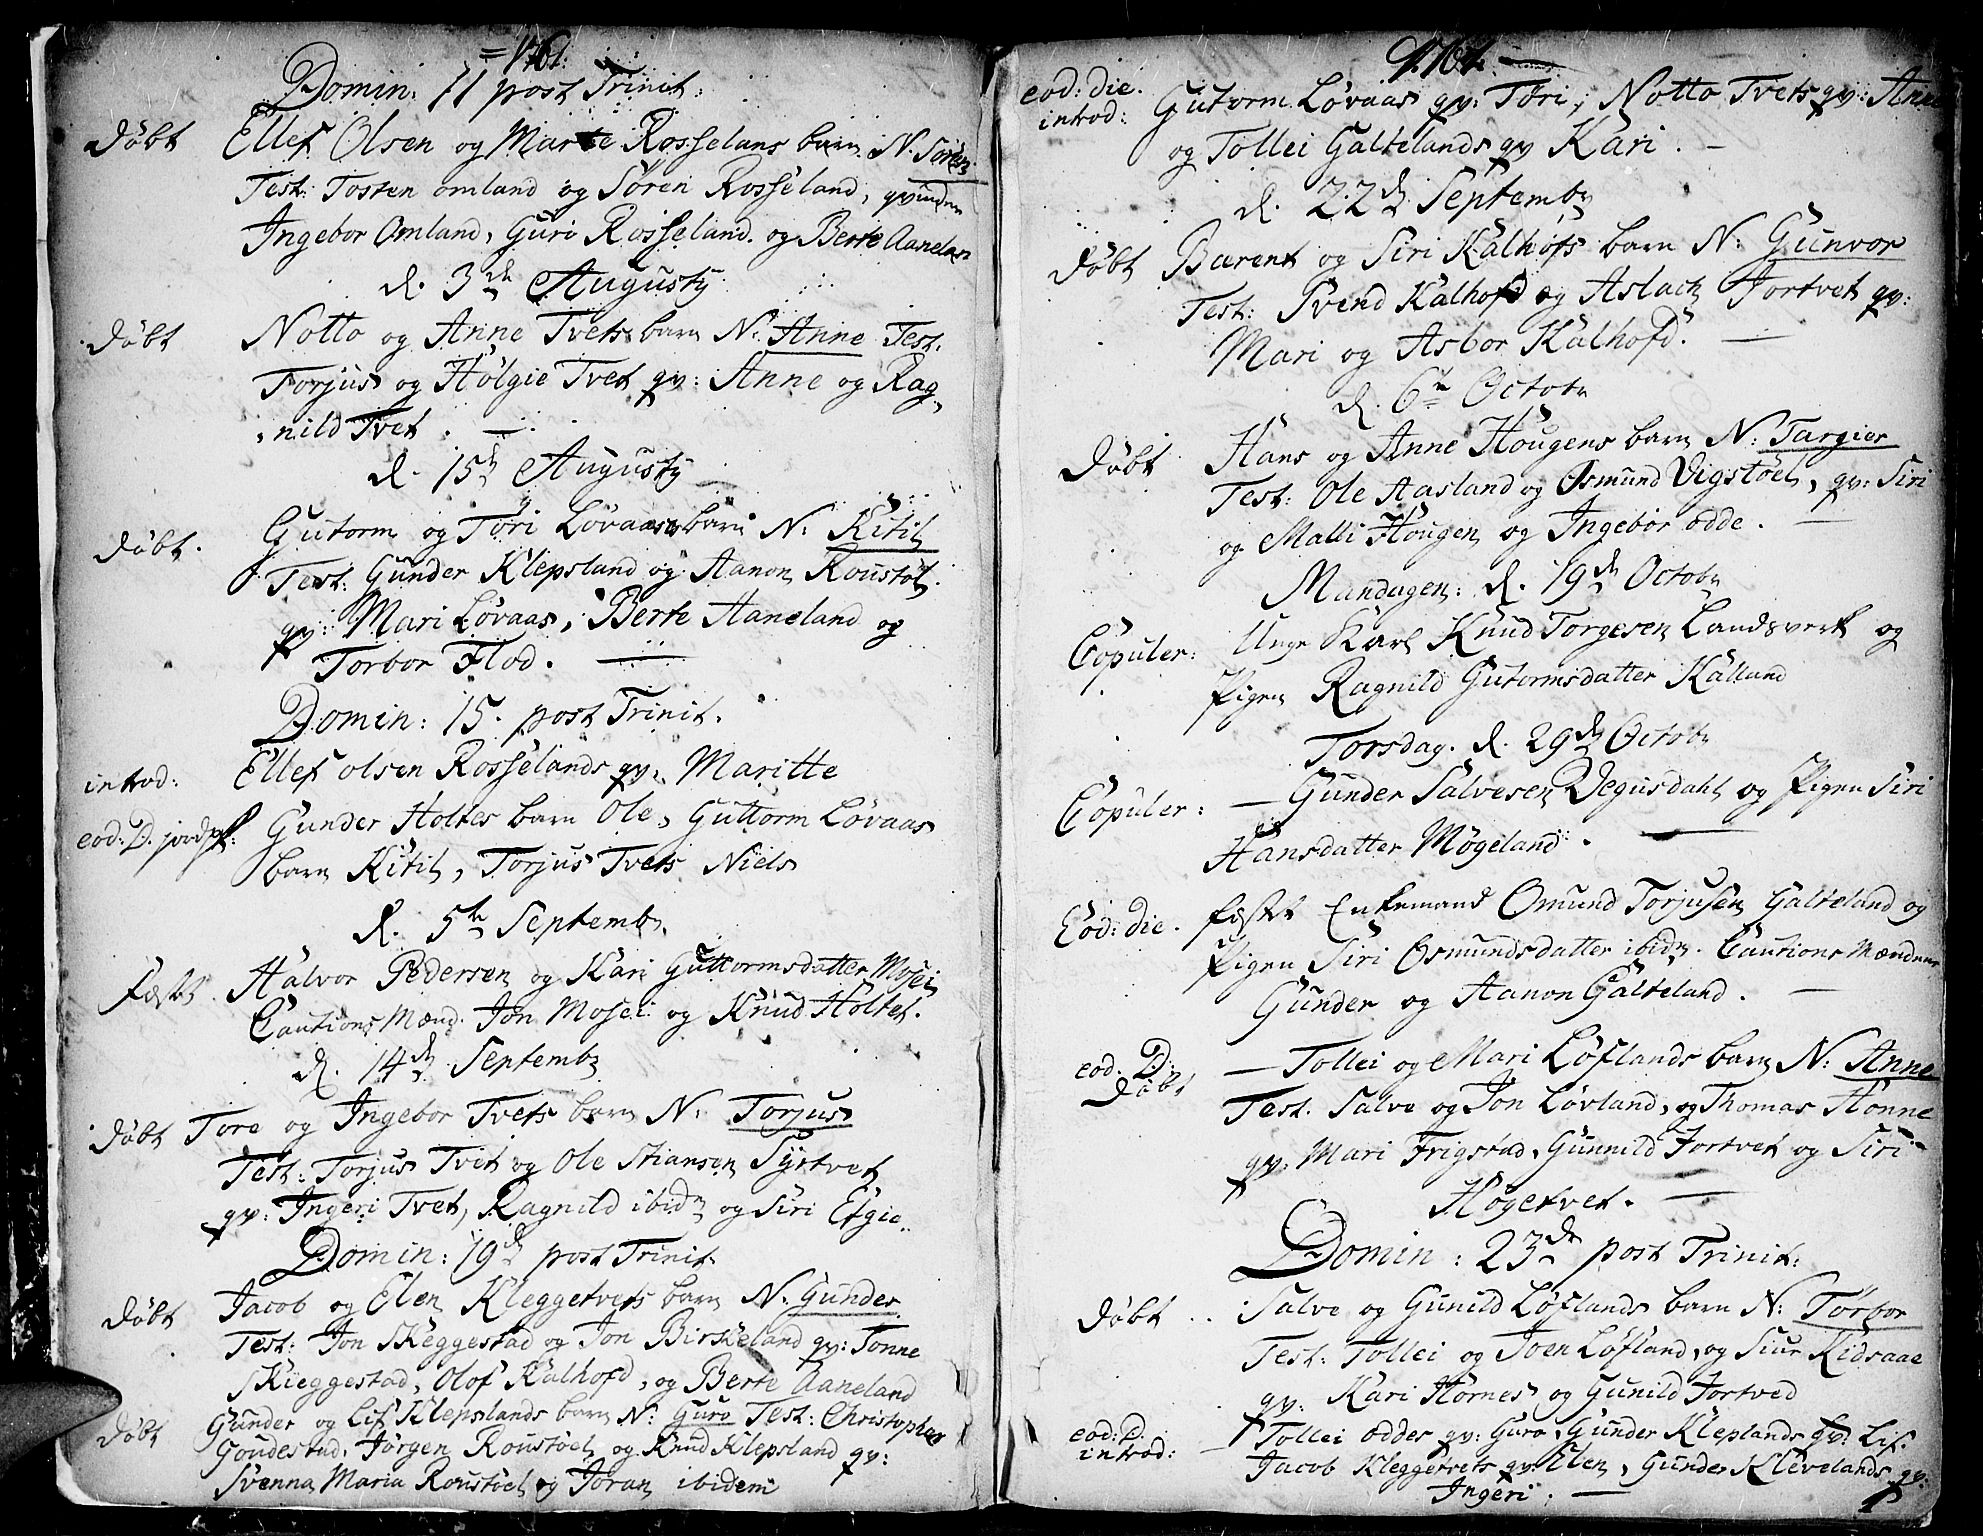 =1761:
Domin: 11 post Trinit:
Døbt Ellef Olsen og Marte Rosselans barn N. Søren
Test: Tosten omland og Søren Rosseland, qvinden
Ingebor Omland, Guro Rosseland. og Berte Aaneland
d. 3de Augusty
Døbt Notto og Anne Tvets barn N: Anne Test.
Torjus og Hølgie Tvet qv: Anne og Rag,
,nild Tvet. —
d. 15d Augusty
Døbt. Gutorm og Tøri Løvaases barn N: Kitil
Test: Gunder Klepsland og Aanon Roustøl.
qv: Mari Løvaas, Berte Aaneland og
Torbor Flod. —
Domin: 15. post Trinit.
introd: Ellef olsen Rosselands qv: Maritte
eod: D. jordpf: Gunder Holtes barn Ole, Guttorm Løvaas
barn Kitil, Torjus Tvets Niels
d. 5te Septemb.
Fæstet. Halvor Pedersen og Kari Guttormsdatter Mosei
Cautions Mænd. Jon Mosei og Knud Holtet.
d. 14d Septembr
Døbt Tore og Ingebor Tvets barn N: Torjus
Test: Torjus Tvet og Ole Stiansen Syrtvet
qv: Ingeri Tvet, Ragnild ibidm og Siri Efgie..
Domin: 19d post Trinit.
Døbt Jacob og Elen Kleggetvets barn N: Gunder
Test: Jon Skeggestad og Jon Birkeland qv: Tonne
Skieggestad, Olof Kalhofd, og Berte Aaneland
Døbt Gunder og Lif Klepslands barn N: Guro Test: Christopher
Goudestad, Jørgen Roustøel og Knud Klepsland qv:
Svenna Maria Roustøel og Joran ibidem
1761.
eod: die. introd: Gutorm Løvaas qv: Tøri, Notto Tvets qv: Anne
og Tollei Galtelands qv Kari. —
d. 22d Septembr
Døbt Bærent og Siri Kalhofs barn N: Gunvor
Test: Svend Kalhofd og Aslach Jortvet qv:
Mari og Asbor Kalhofd. —
d. 6te Octobr
Døbt Hans og Anne Hougens barn N: Targier
Test: Ole Aasland og Osmund Vigstøel, qv: Siri
og Malli Hougen og Ingebor odde. —
Mandagen: d. 19de Octobr
Copuler: Unge Karl Knud Torgesen Landsverk og
Pigen Ragnild Gutormsdatter Kalland
Torsdag. d. 29de Octobr
Copuler: — Gunder Salvesen Degusdahl og Pigen Siri
Hansdatter Møgeland. —
Eod: die. fæstet Enkemand Omund Torjusen Galteland og
Pigen Siri Osmundsdatter ibidm. Cautions Mændene
Gunder og Aanon Galteland. —
eod. D: Døbt — Tollei og Mari Løflands barn N: Anne
Test. Salve og Jon Løvland, og Thomas Honne
qv: Mari Frigstad, Gunnild Jortvet og Siri
Høgetvet. —
Domin: 23de post Trinit:
Døbt .. Salve og Gunild Løflands barn N: Torbor
Test: Tollei og Joen Løfland, og Siur Kidsaae
qv: Kari Hornes og Gunild Jortved
eod: D. introd: — Tollei oddes qv: Guro, Gunder Kleplands qv: Lif.
Jacob Kleggetvets qv: Elen, Gunder Klevelands qv:
Ingeri. —